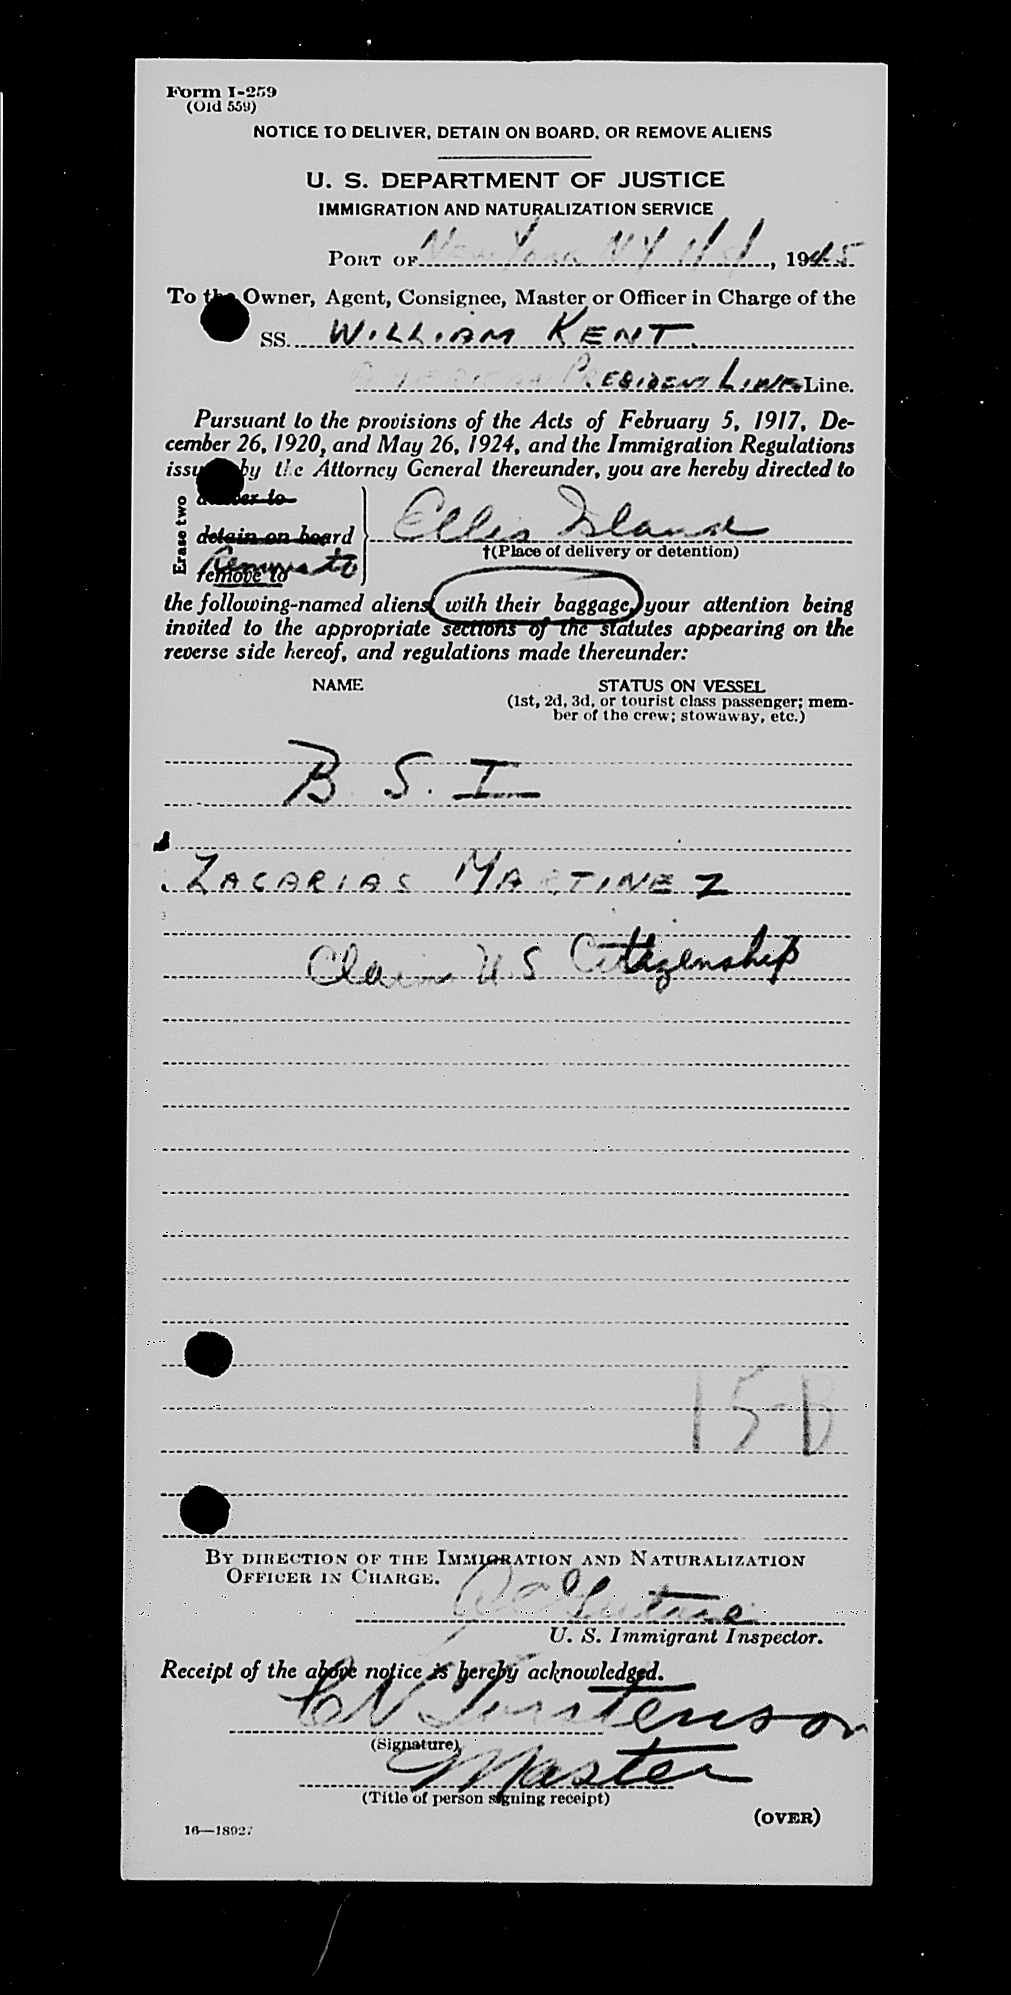 Form I-259
(Old 559)
NOTICE TO DELIVER, DETAIN ON BOARD, OR REMOVE ALIENS
U. S. DEPARTMENT OF JUSTICE
IMMIGRATION AND NATURALIZATION SERVICE
PORT OF New York NY, 1945
To the Owner, Agent, Consignee, Master or Officer in Charge of the
SS. WILLIAM KENT
AMERICAN PRESIDENT LINE Line.
Pursuant to the provisions of the Acts of February 5, 1917, De-
cember 26, 1920, and May 26, 1924, and the Immigration Regulations
issued by the Attorney General thereunder, you are hereby directed to
Erase two
deliver to
detain on board
Remove to
remove to
Ellis Island
†(Place of delivery or detention)
the following-named aliens with their baggage, your attention being
invited to the appropriate sections of the statutes appearing on the
reverse side hereof, and regulations made thereunder:
NAME STATUS ON VESSEL
(1st, 2d, 3d, or tourist class passenger; mem-
ber of the crew; stowaway, etc.)
B. S. I
ZACARIAS MARTINEZ
Claims US Citizenship
15-B
BY DIRECTION OF THE IMMIGRATION AND NATURALIZATION
OFFICER IN CHARGE.
U. S. Immigrant Inspector.
Receipt of the above notice is hereby acknowledged.
(Signature)
Master
(Title of person signing receipt)
(OVER)
16—18927